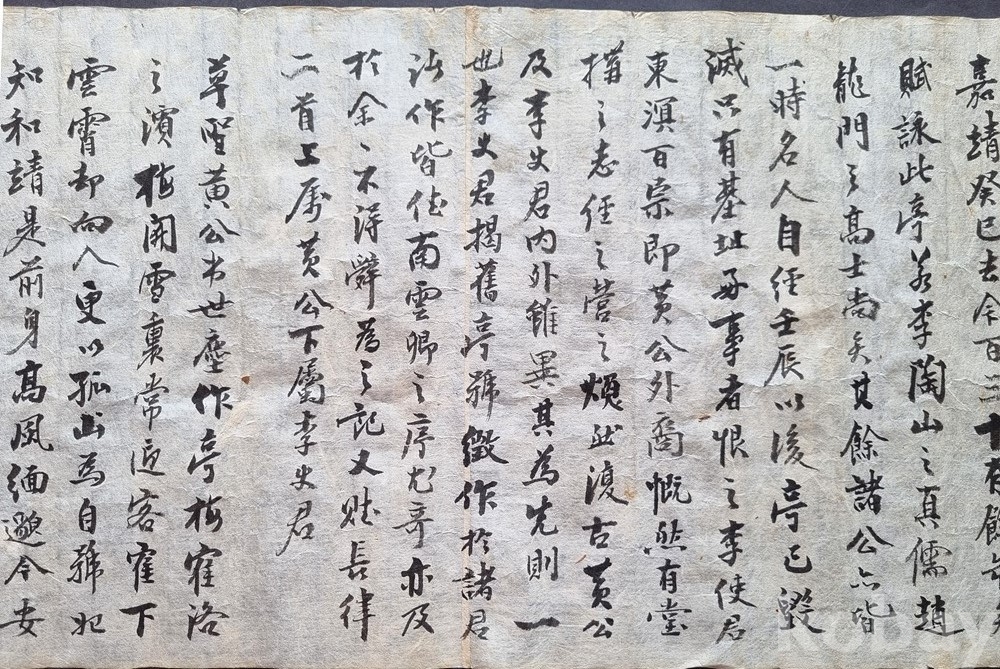 嘉靖癸巳去今百三十有餘年矣
賦詠此亭若李陶山之真儒趙
龍門之高士尚矣其餘諸公亦皆
一時名人自經壬辰以後亭已毀
滅只有基址毋事者恨之李使君
東溟百宗即黃公外裔慨然有堂
搆之志經之營之煥然復古黃公
及李史君內外雖異其為先則一
也李史君揭舊亭號徵作於諸君
作皆佳南雲卿之序尤奇亦及
於余余不得辭為之記又賦長律
二首上屬黃公下屬李史君
草聖黃公出世塵作亭梅寉洛
之濱梅開雪裏常迎客寉下
雲霄却向人更以孤山為自號
知和靖是前身高風緬邈今安